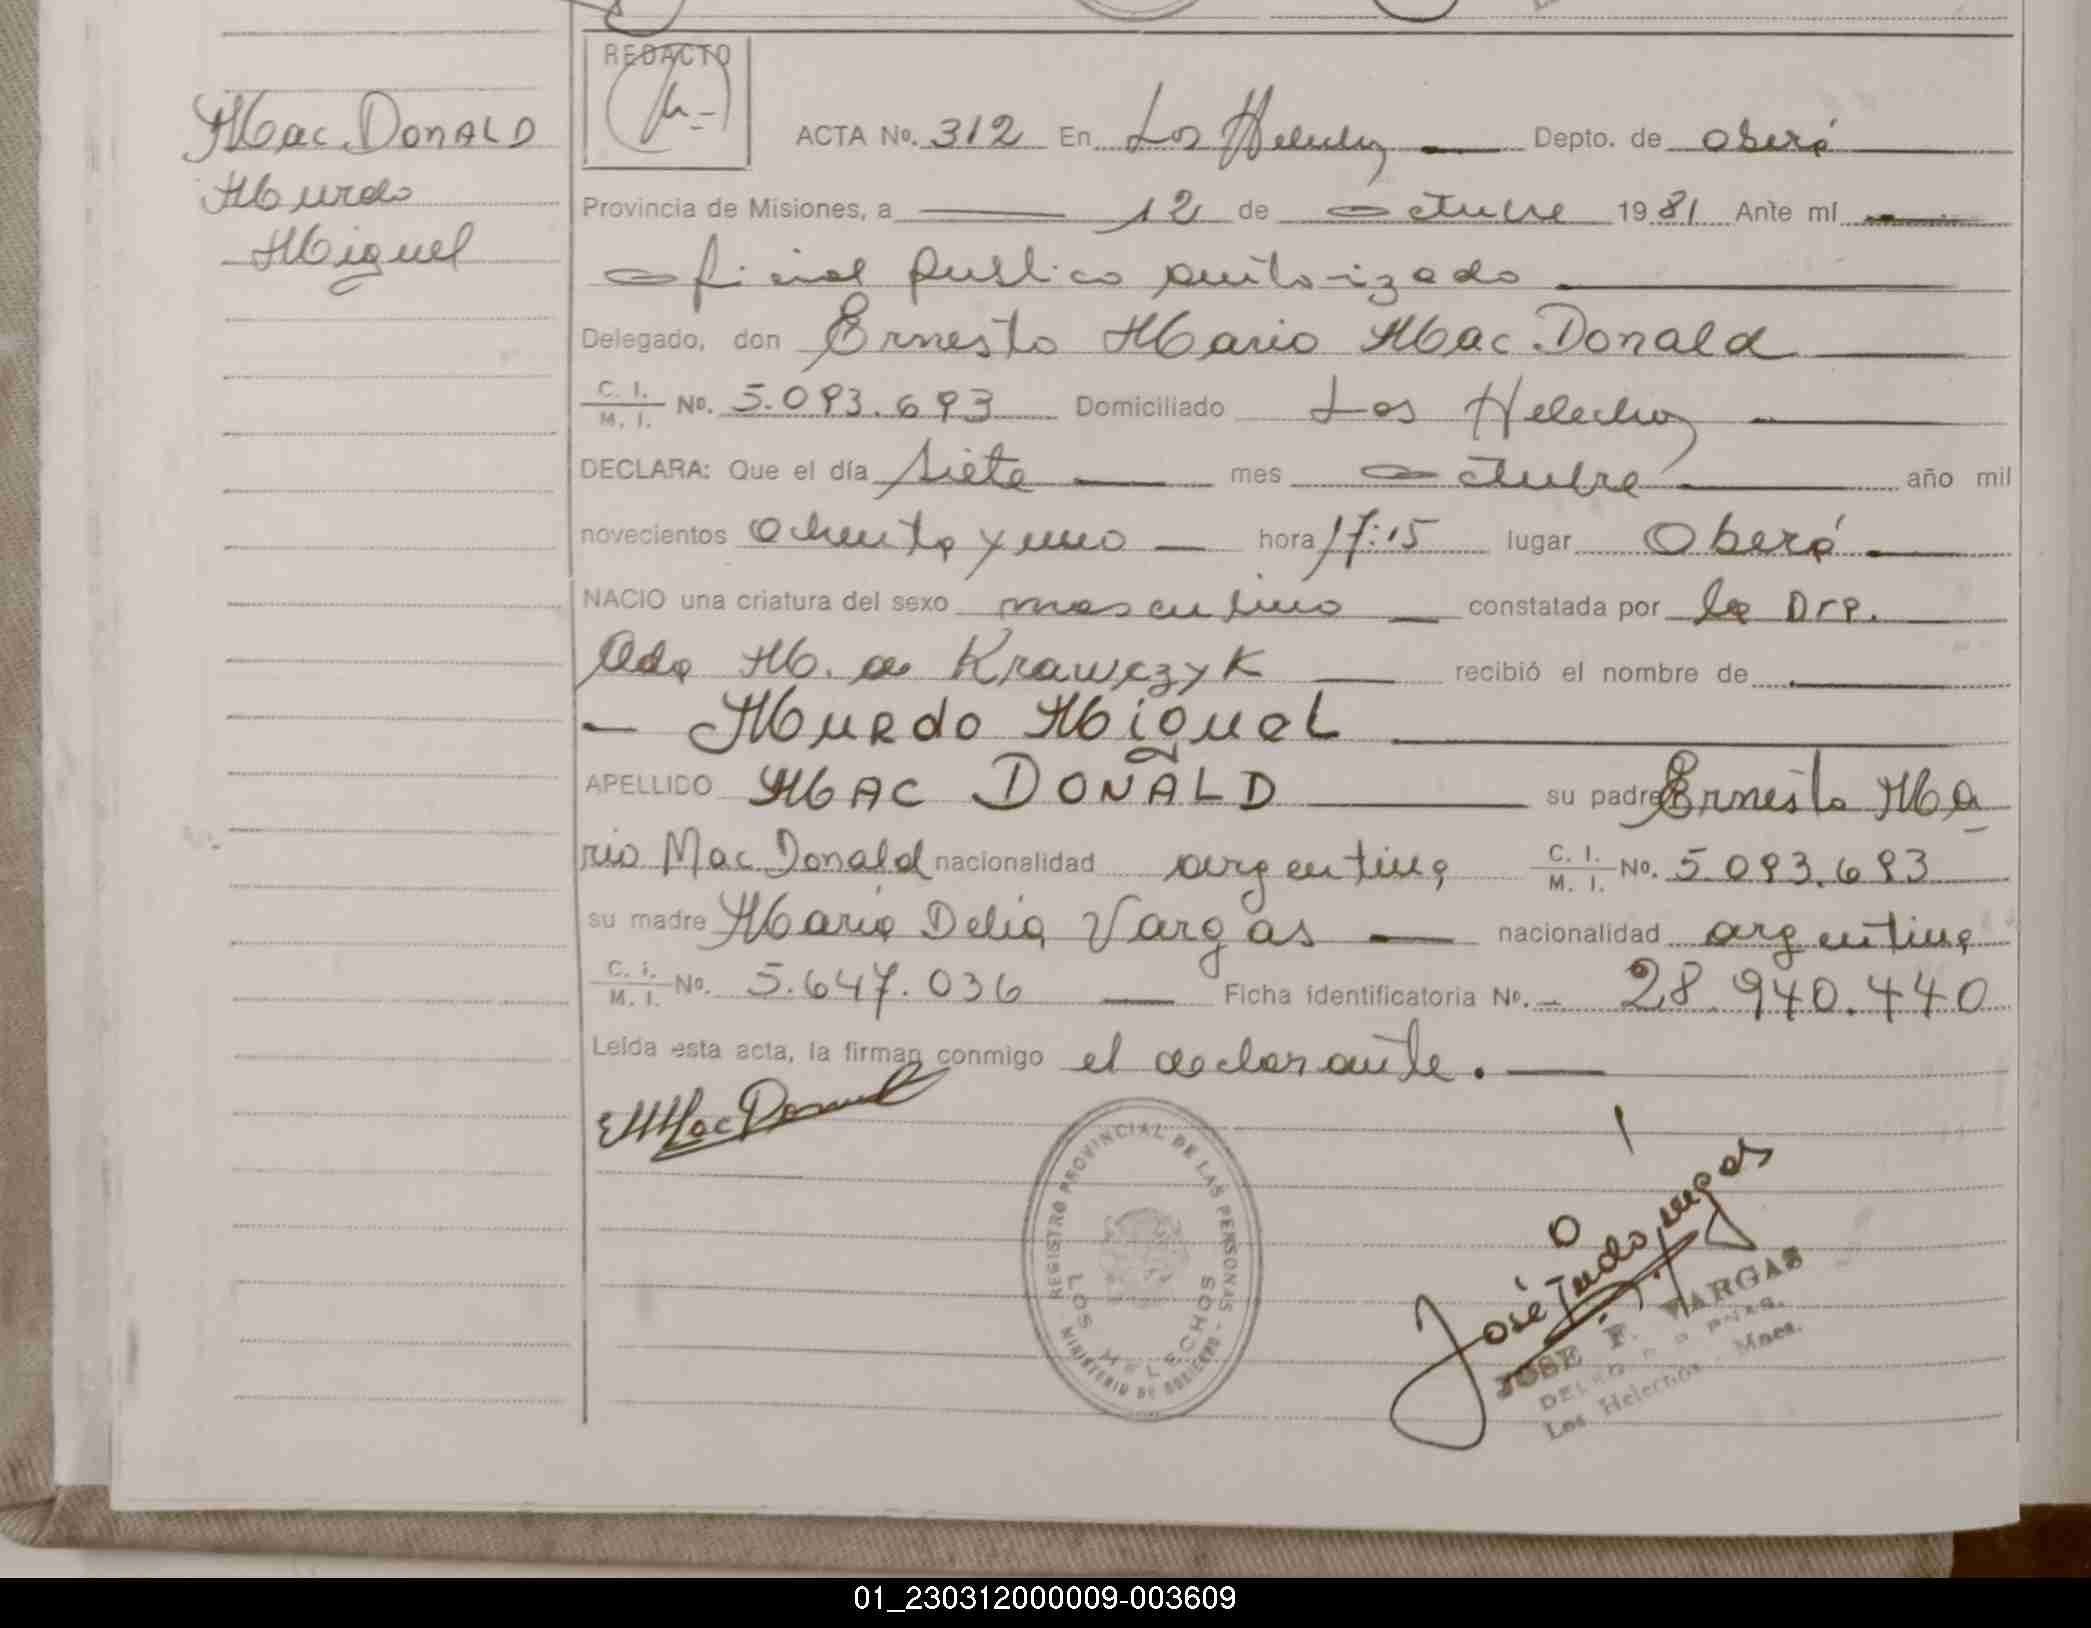 REDACTO
Mac Donald
Murdo
Miguel
ACTA No. 312 En Los Helechos Depto. de Oberá
Provincia de Misiones, a 12 de octubre 1981 Ante mí
oficial publico autorizado
Delegado, don Ernesto Mario Mac Donald
C. I. / M. I. No. 5.093.693 Domiciliado Los Helechos
DECLARA: Que el día siete mes octubre año mil
novecientos ochenta y uno hora 17:15 lugar Oberá
NACIO una criatura del sexo masculino constatada por la Dra.
Ada M. de Krawczyk recibió el nombre de
Murdo Miguel
APELLIDO MAC DONALD su padre Ernesto Ma
rio Mac Donald nacionalidad argentina C. I. / M. I. No. 5.093.693
su madre Maria Delia Vargas nacionalidad argentina
C. I. / M. I. No. 5.647.036 Ficha identificatoria No. 28.940.440
Leída esta acta, la firman conmigo el declarante.
EMMac Donald
REGISTRO PROVINCIAL DE LAS PERSONAS
LOS HELECHOS
MINISTERIO DE GOBIERNO
José Vargas
JOSE F. VARGAS
Los Helechos - Mnes.
01_230312000009-003609